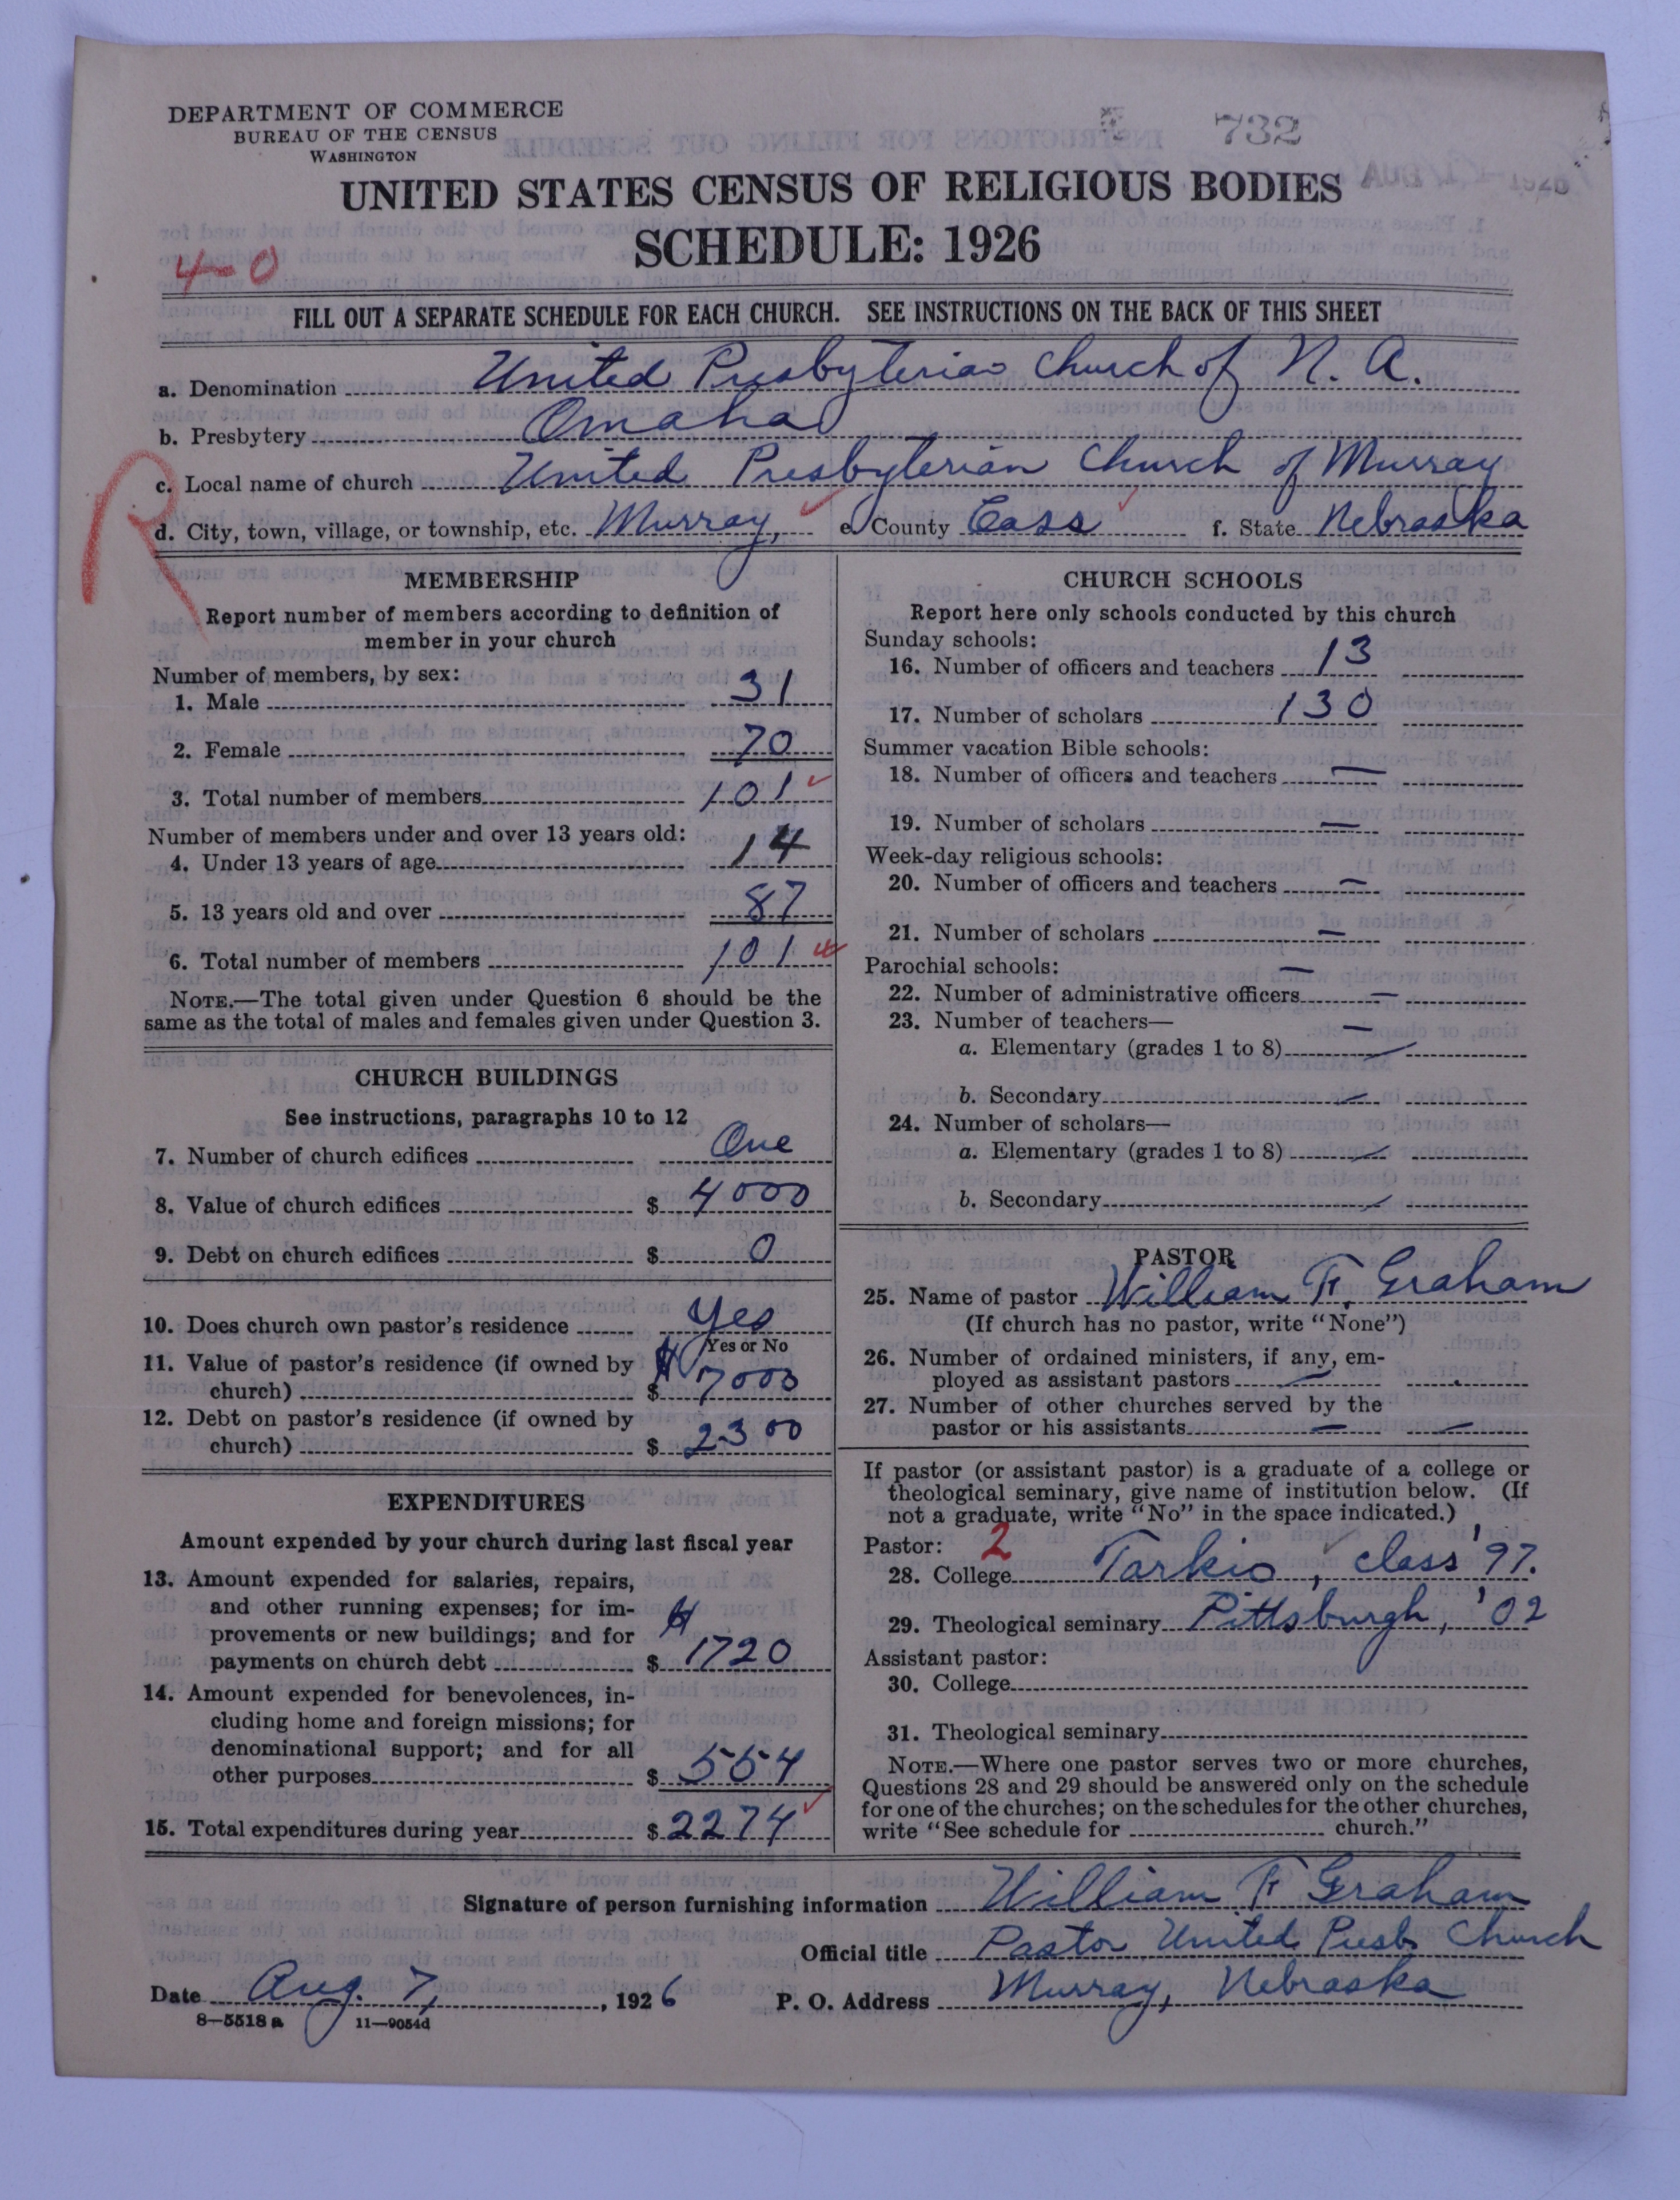 DEPARTMENT OF COMMERCE
BUREAU OF THE CENSUS
WASHINGTON
732
1926
UNITED STATES CENSUS OF RELIGIOUS BODIES
SCHEDULE: 1926
4-0
FILL OUT A SEPARATE SCHEDULE FOR EACH CHURCH. SEE INSTRUCTIONS ON THE BACK OF THIS SHEET
a. Denomination United Presbyterian Church of N. A.
b. Presbytery Omaha
R
c. Local name of church United Presbyterian Church of Murray
d. City, town, village, or township, etc. Murray, e. County Cass f. State Nebraska
MEMBERSHIP
Report number of members according to definition of
member in your church
Number of members, by sex:
1. Male 31
2. Female 70
3. Total number of members 101
Number of members under and over 13 years old:
4. Under 13 years of age 14
5. 13 years old and over 87
6. Total number of members 101
NOTE.—The total given under Question 6 should be the
same as the total of males and females given under Question 3.
CHURCH BUILDINGS
See instructions, paragraphs 10 to 12
7. Number of church edifices One
8. Value of church edifices $ 4000
9. Debt on church edifices $ 0
10. Does church own pastor's residence Yes
Yes or No
11. Value of pastor's residence (if owned by
church) $ 7000
12. Debt on pastor's residence (if owned by
church) $ 2300
EXPENDITURES
Amount expended by your church during last fiscal year
13. Amount expended for salaries, repairs,
and other running expenses; for im-
provements or new buildings; and for
payments on church debt $ 1720
14. Amount expended for benevolences, in-
cluding home and foreign missions; for
denominational support; and for all
other purposes $ 554
15. Total expenditures during year $ 2274
CHURCH SCHOOLS
Report here only schools conducted by this church
Sunday schools:
16. Number of officers and teachers 13
17. Number of scholars 130
Summer vacation Bible schools:
18. Number of officers and teachers —
19. Number of scholars —
Week-day religious schools:
20. Number of officers and teachers —
21. Number of scholars —
Parochial schools: —
22. Number of administrative officers —
23. Number of teachers— —
a. Elementary (grades 1 to 8) —
b. Secondary —
24. Number of scholars—
a. Elementary (grades 1 to 8) —
b. Secondary —
PASTOR
25. Name of pastor William F. Graham
(If church has no pastor, write "None")
26. Number of ordained ministers, if any, em-
ployed as assistant pastors —
27. Number of other churches served by the
pastor or his assistants — —
If pastor (or assistant pastor) is a graduate of a college or
theological seminary, give name of institution below. (If
not a graduate, write "No" in the space indicated.)
Pastor: 2
28. College Tarkio, class '97.
29. Theological seminary Pittsburgh, '02
Assistant pastor:
30. College
31. Theological seminary
NOTE.—Where one pastor serves two or more churches,
Questions 28 and 29 should be answered only on the schedule
for one of the churches; on the schedules for the other churches,
write "See schedule for church."
Signature of person furnishing information William F Graham
Official title Pastor United Presb. Church
Date Aug. 7, , 1926 P. O. Address Murray, Nebraska
8—5518 a 11—9054d